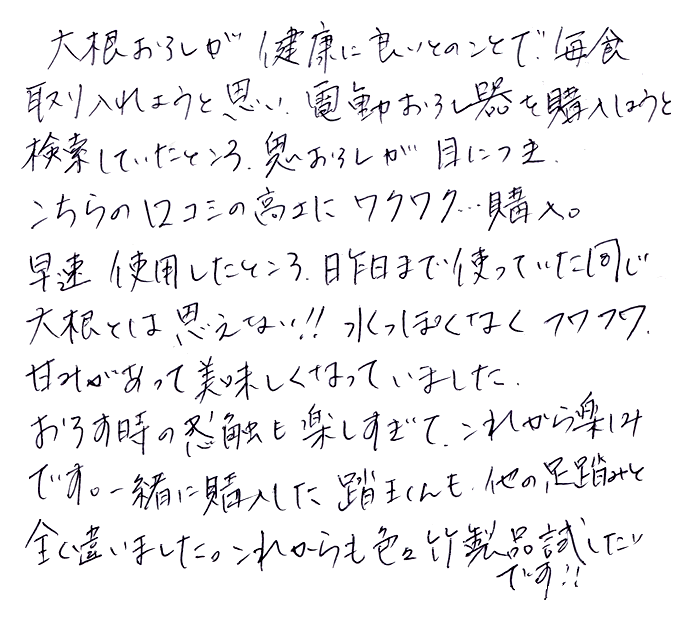 大根おろしが健康に良いとのことで、毎食
取り入れようと思い、電動おろし器を購入しようと
検索していたところ、鬼おろしが目につき、
こちらの口コミの高さにワクワク…購入。
早速使用したところ、昨日まで使っていた同じ
大根とは思えない!!水っぽくなくフワフワ、
甘みがあって美味しくなっていました。
おろす時の感触も楽しすぎて、これから楽しみ
です。一緒に購入した踏王くんも、他の足踏みと
全く違いました。これからも色々竹製品試したい
です!!